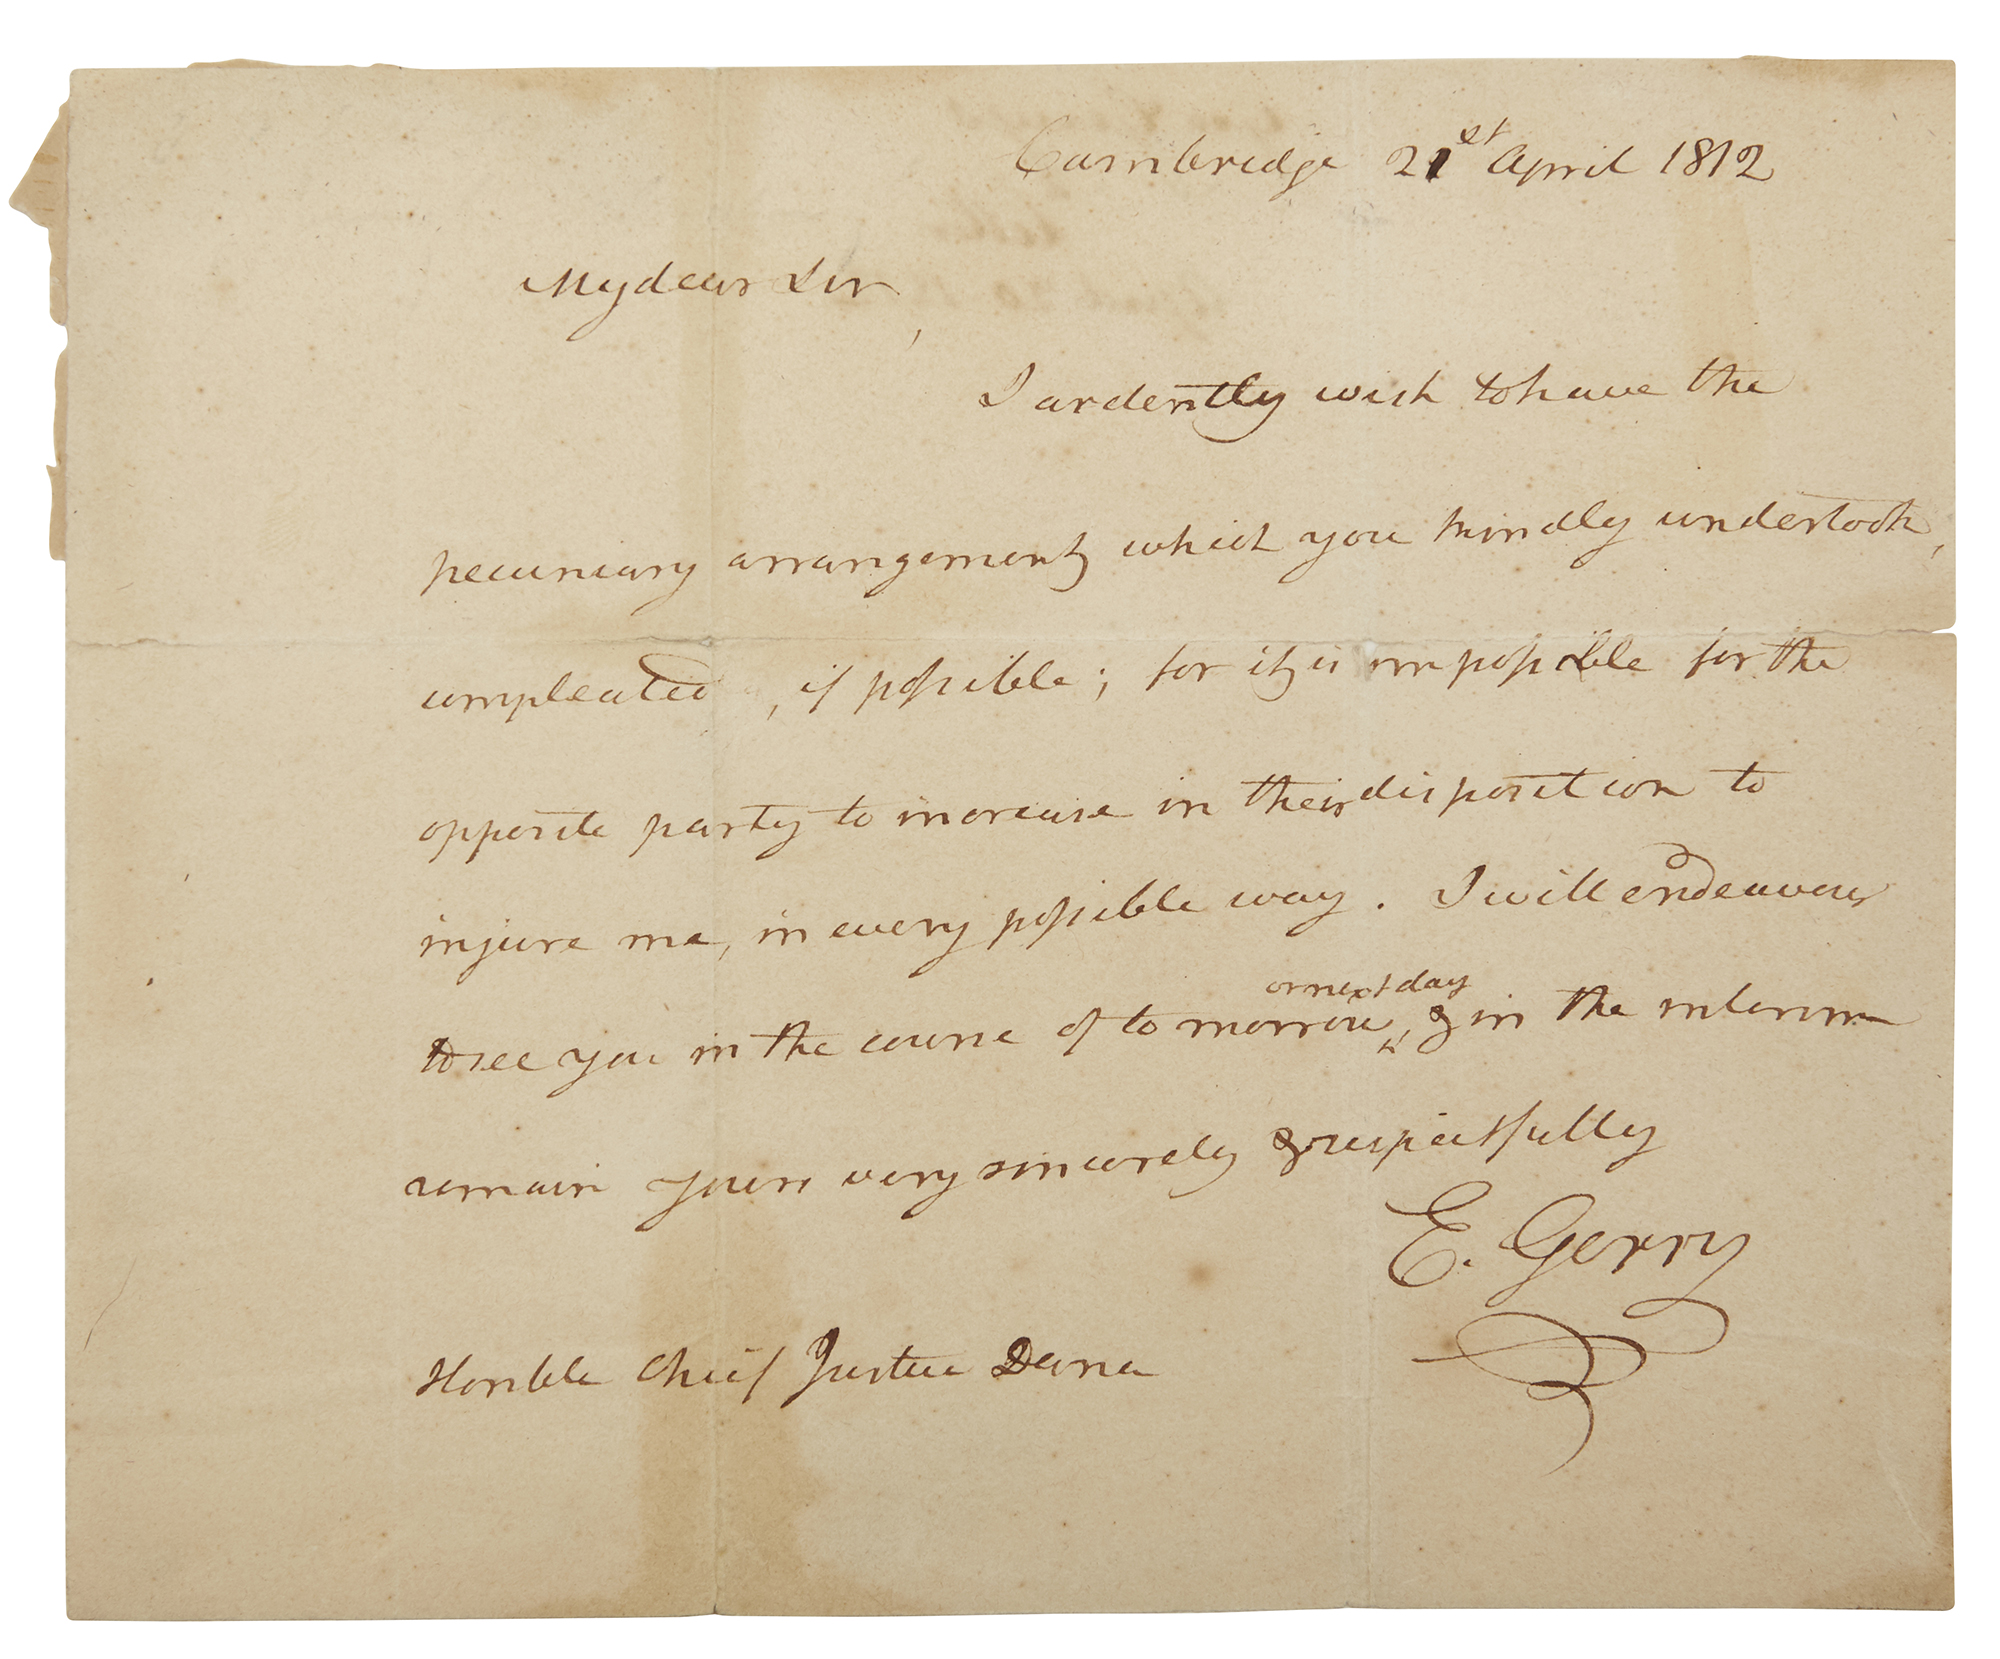 Cambridge 21st April 1812
My dear Sir,
I ardently wish to have the
pecuniary arrangement, which you kindly undertook,
compleated, if possible; for it is impossible for the
opposite party to increase in their disposition to
injure me, in every possible way. I will endeavour
or next day
to see you in the course of to morrow, & in the interim
remain yours very sincerely & respectfully
E. Gerry
Honble Chief Justice Dana